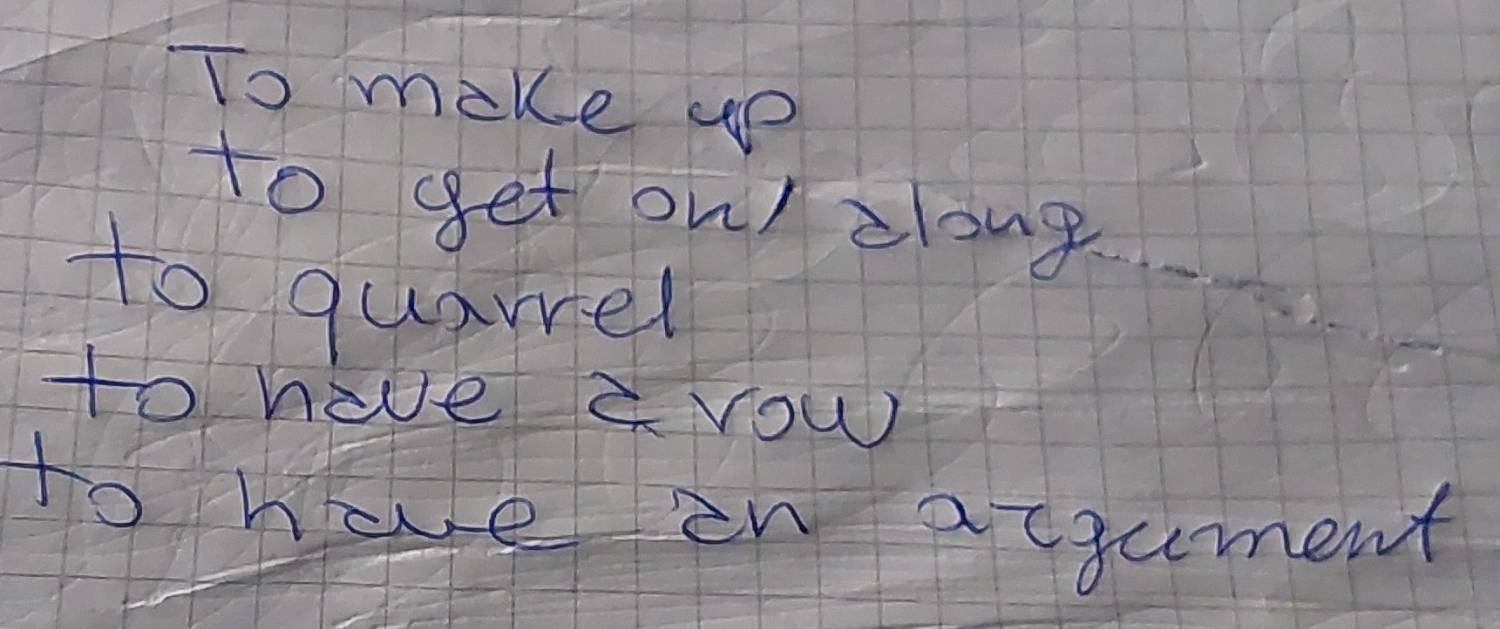 To make up
to get on/ along
to quarrel
to have a row
to have an argument